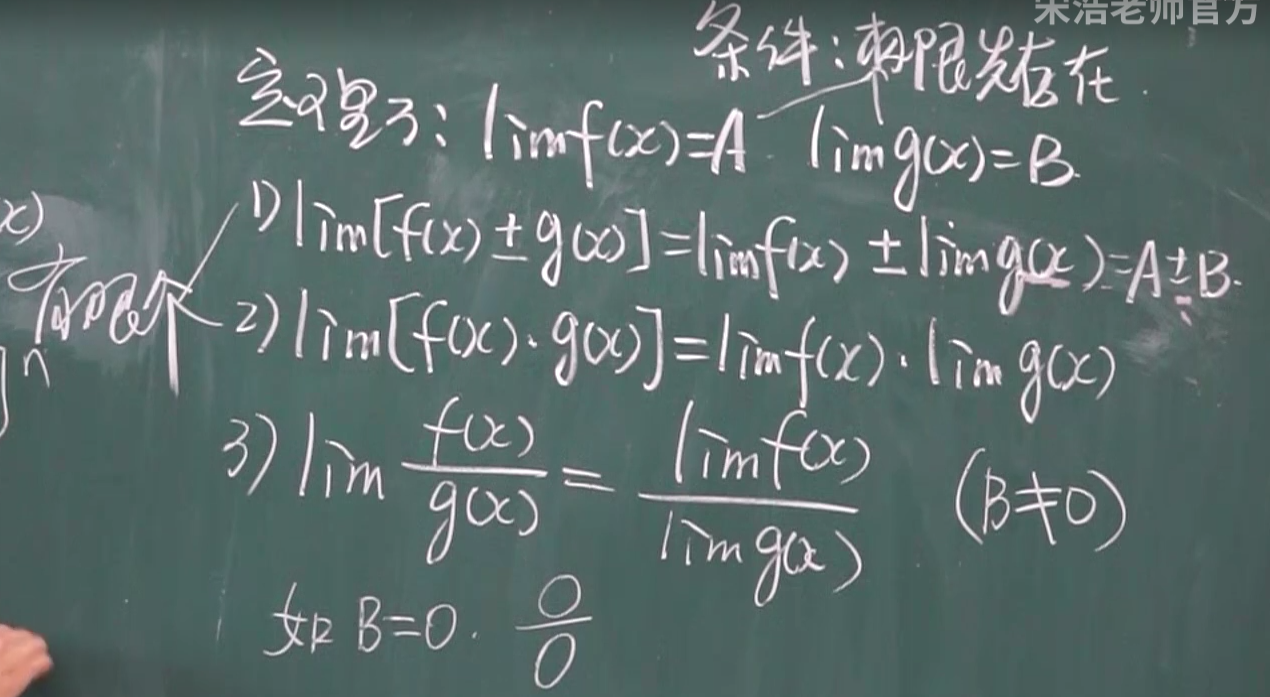 宋浩老师官方
条件：极限先存在
定理3：lim f(x)=A lim g(x)=B.
1) lim[f(x)±g(x)]=lim f(x)±lim g(x)=A±B.
x)
有限个
2) lim[f(x)·g(x)]=lim f(x)·lim g(x)
]n
3) lim f(x)/g(x) = lim f(x)/lim g(x) (B≠0)
如B=0. 0/0